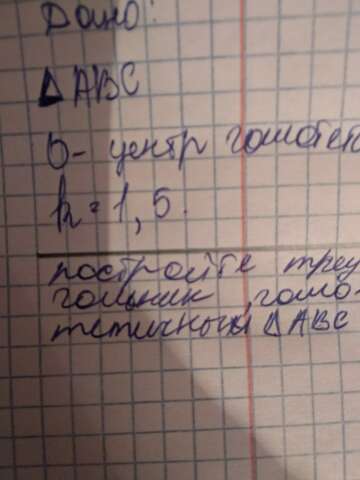 Дано:
ΔABC
О- центр гомотет
k=1,5.
постройте треу
гольник гомо-
тетичный ΔABC